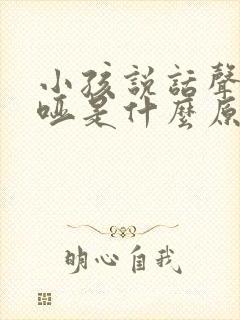 小孩説話聲
啞是什麼原
明心自我